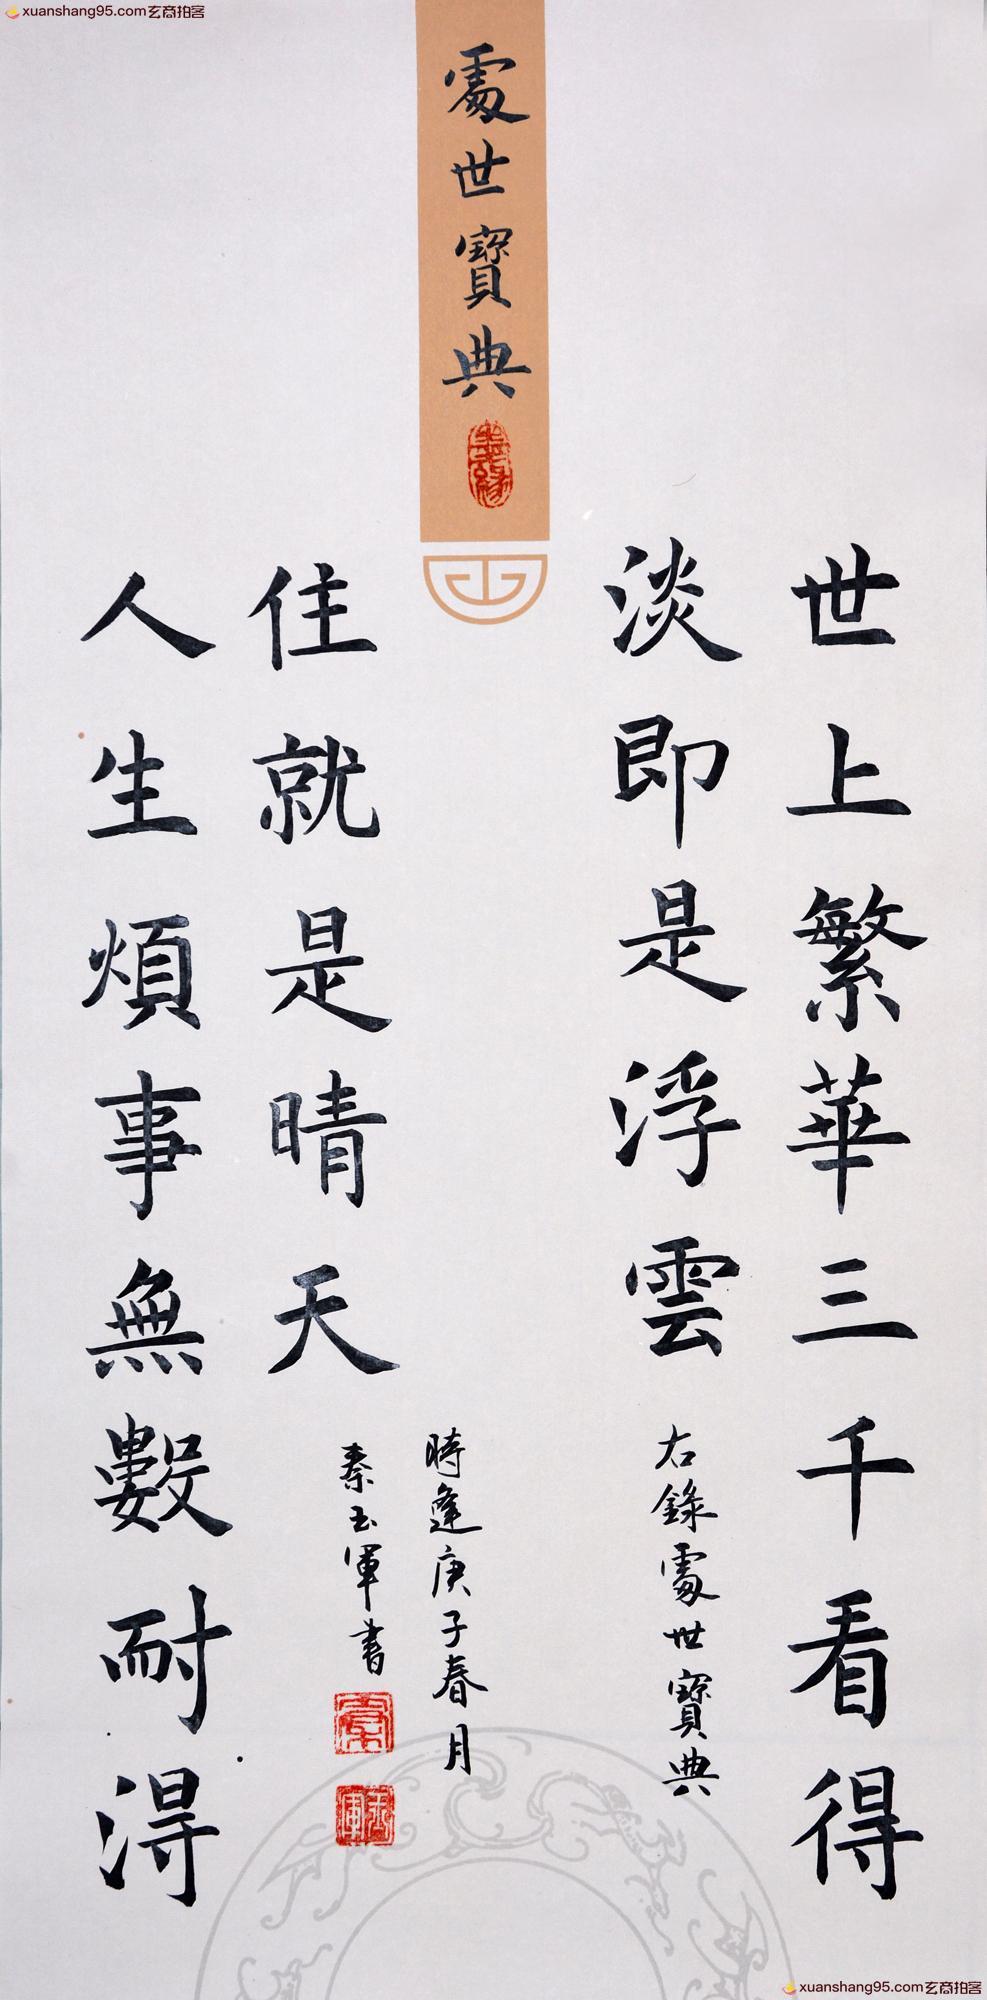 xuanshang95.com玄商拍客
處世寶典
世上繁華三千看得
淡即是浮雲
右錄處世寶典
人生煩事無數耐得
住就是晴天
時逢庚子春月
秦玉軍書
xuanshang95.com玄商拍客